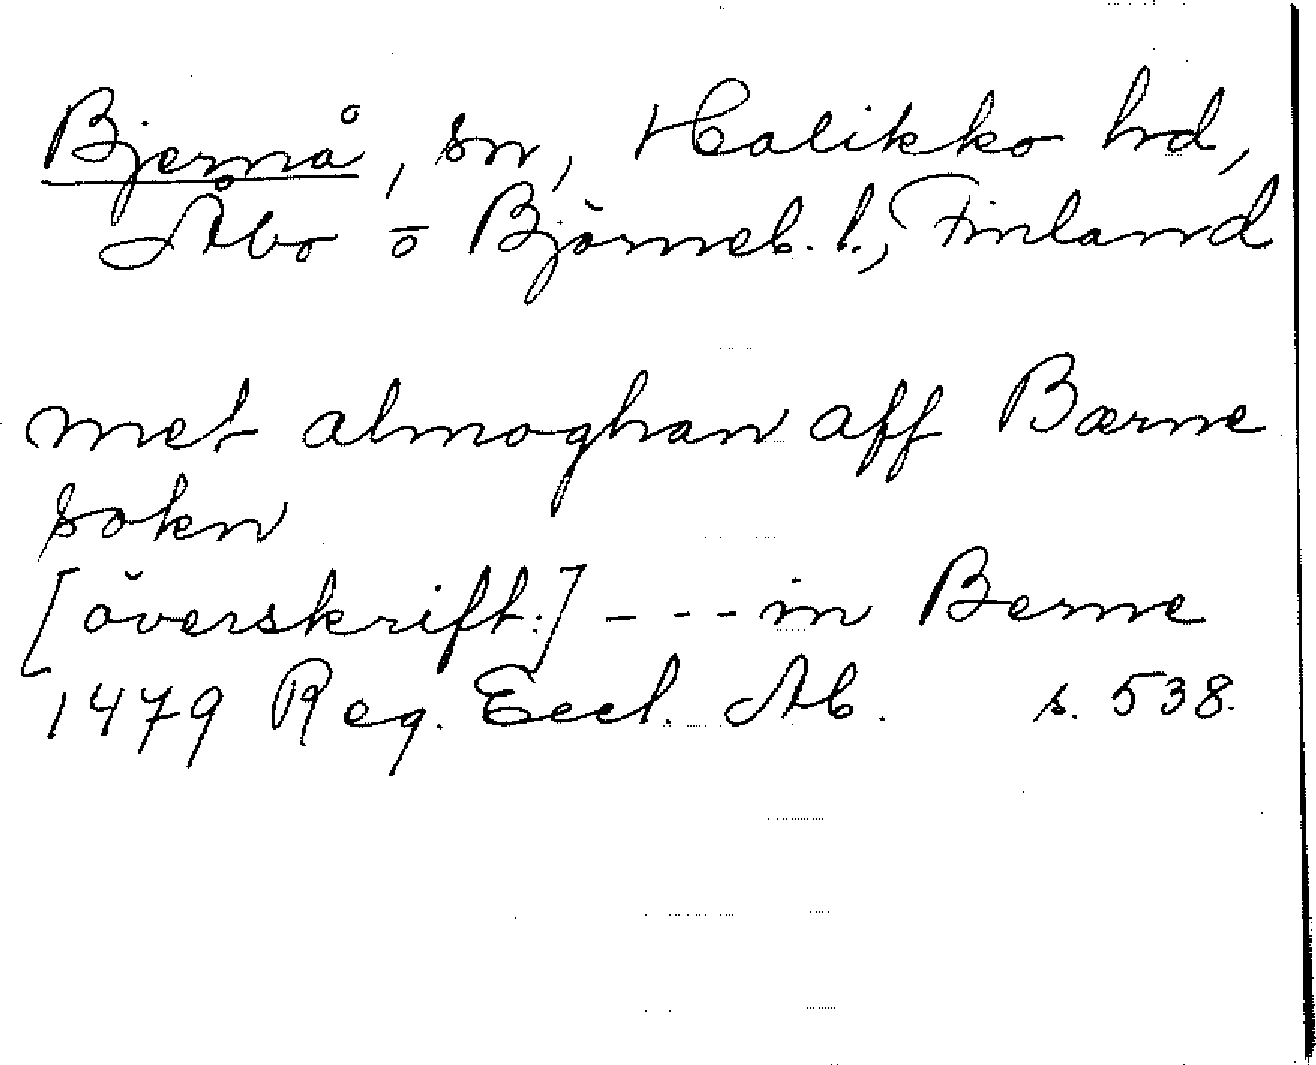 Bjernå, sn, Halikko hd,
Åbo o Björneb. l., Finland
met almoghan aff Bærne
sokn
[överskrift:] - - - in Berne
1479 Reg. Eccl. Ab. s. 538.